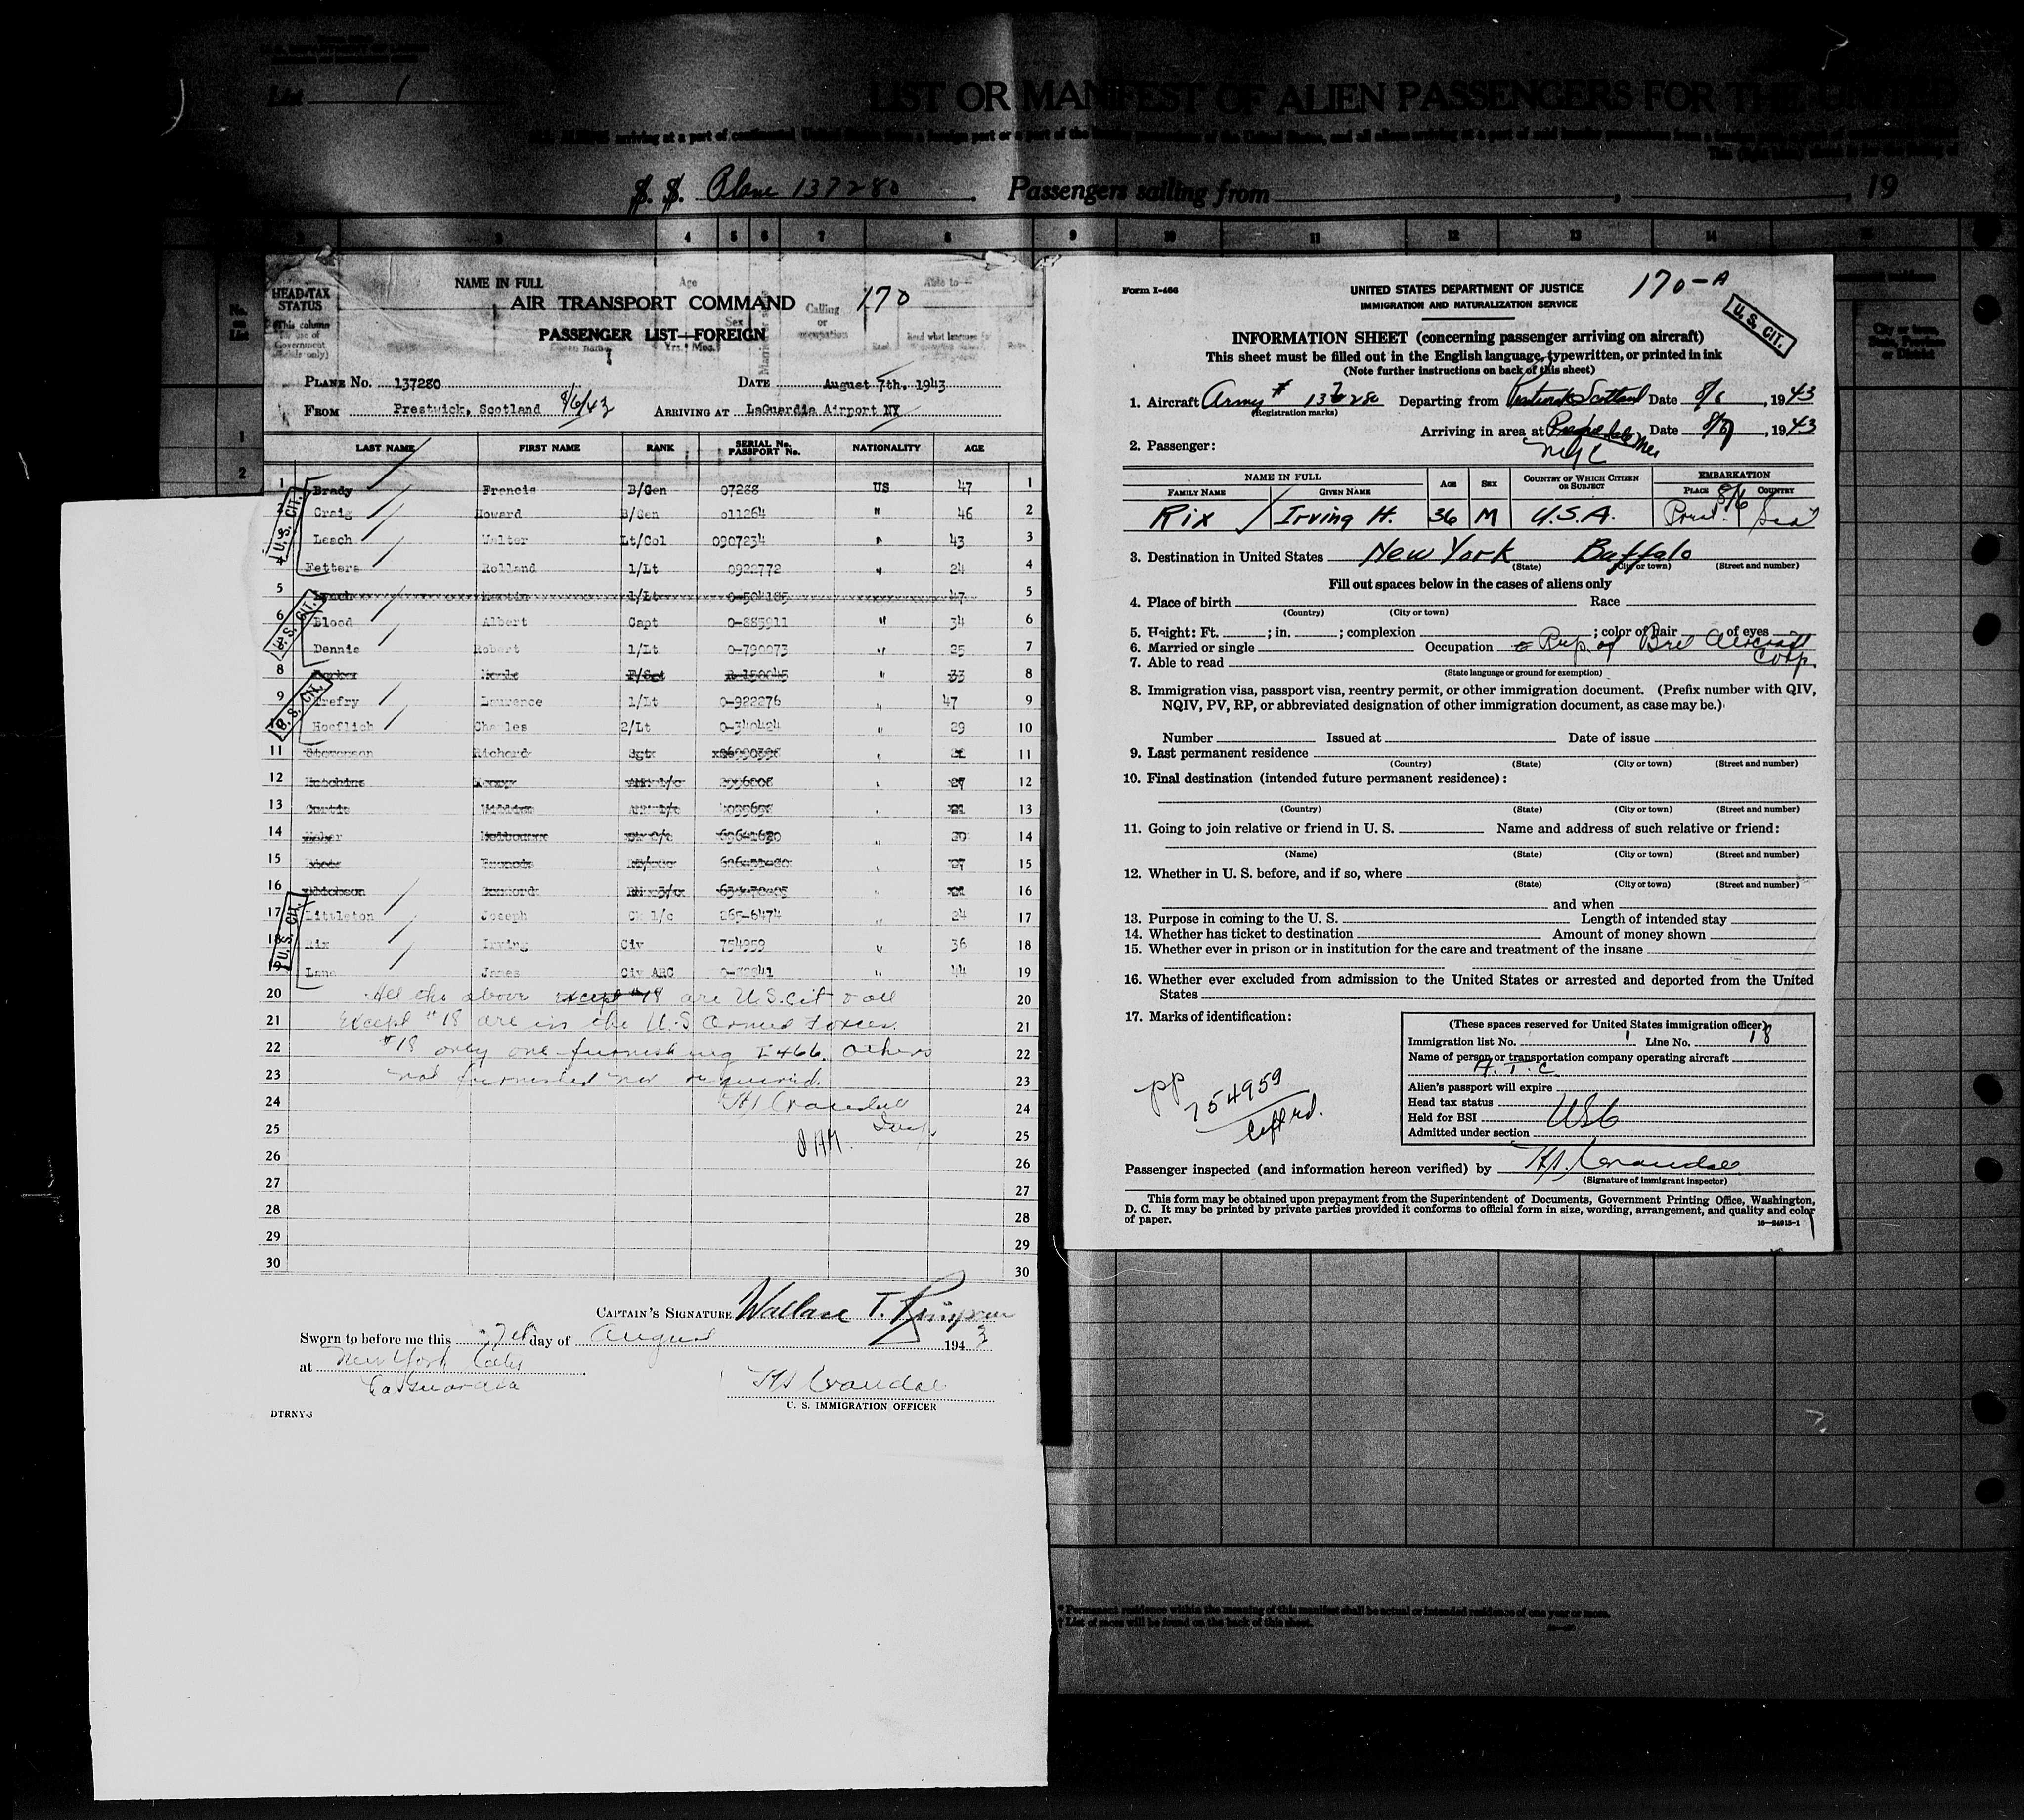 List 1
LIST OR MANIFEST OF ALIEN PASSENGERS FOR THE UNITED
ALL ALIENS arriving at a port of continental United States from a foreign port or a port of the insular possessions of the United States, and all aliens arriving at a port of said insular possessions from a foreign port
S. S. Plane 137280 Passengers sailing from , 19
1 3 4 5 6 7 8 9 10 11 12 13 14 15
No. on List
HEAD-TAX STATUS
(This column for use of Government officials only)
NAME IN FULL
Age
Yrs. Mos.
Sex
Calling or occupation
Able to—
Read
Read what language
1
2
AIR TRANSPORT COMMAND 170
PASSENGER LIST—FOREIGN
PLANE No. 137280 DATE August 7th, 1943
FROM Prestwick, Scotland 8/6/43 ARRIVING AT LaGuardia Airport NY
LAST NAME FIRST NAME RANK SERIAL No. PASSPORT No. NATIONALITY AGE
1 Brady Francis B/Gen 07288 US 47 1
2 Craig Howard B/Gen 011264 " 46 2
Lesch Walter Lt/Col 0907234 " 43 3
4 Fetters Rolland 1/Lt 0922772 " 24 4
5 Lynch Martin 1/Lt 0-504185 47 5
6 Blood Albert Capt 0-885911 " 34 6
Dennis Robert 1/Lt 0-790073 " 25 7
8 " 33 8
9 Trefry Laurence 1/Lt 0-922276 " 47 9
10 Hoeflich Charles 2/Lt 0-340424 " 29 10
11 Stevenson Richard Sgt " 11
12 Hutchins " 27 12
13 Curtis " 21 13
14 " 20 14
15 " 27 15
16 " 16
17 Littleton Joseph CM 1/c 265-6474 " 24 17
18 Rix Irving Civ 754959 " 36 18
19 Lane James Civ ARC " 44 19
U. S. CIT.
U. S. CIT.
U. S. CIT.
U. S. CIT.
20 All the above except #18 are U.S. cit & all 20
21 Except #18 are in the U.S Armed Forces. 21
22 #18 only one furnishing I466. Others 22
23 not furnished nor required. 23
24 Crandall 24
25 Insp. 25
26 26
27 27
28 28
29 29
30 30
CAPTAIN'S SIGNATURE Wallace T.
Sworn to before me this 7th day of August 1943
at New York
LaGuardia
Crandall
U. S. IMMIGRATION OFFICER
DTRNY-3
Form I-466
UNITED STATES DEPARTMENT OF JUSTICE 170-A
IMMIGRATION AND NATURALIZATION SERVICE
U. S. CIT.
INFORMATION SHEET (concerning passenger arriving on aircraft)
This sheet must be filled out in the English language, typewritten, or printed in ink
(Note further instructions on back of this sheet)
1. Aircraft Army # 137280 Departing from Prestwick Scotland Date 8/6, 1943
(Registration marks)
Arriving in area at Presque Isle Me Date 8/7, 1943
NYC
2. Passenger:
NAME IN FULL AGE SEX COUNTRY OF WHICH CITIZEN OR SUBJECT EMBARKATION
FAMILY NAME GIVEN NAME PLACE COUNTRY
8/6
Rix Irving H. 36 M U.S.A. Prest.
3. Destination in United States New York Buffalo
(State) (City or town) (Street and number)
Fill out spaces below in the cases of aliens only
4. Place of birth Race
(Country) (City or town)
5. Height: Ft. ; in. ; complexion ; color of hair of eyes
6. Married or single Occupation Rep. of Bell Aircraft
Corp.
7. Able to read
(State language or ground for exemption)
8. Immigration visa, passport visa, reentry permit, or other immigration document. (Prefix number with QIV,
NQIV, PV, RP, or abbreviated designation of other immigration document, as case may be.)
Number Issued at Date of issue
9. Last permanent residence
(Country) (State) (City or town) (Street and number)
10. Final destination (intended future permanent residence):
(Country) (State) (City or town) (Street and number)
11. Going to join relative or friend in U. S. Name and address of such relative or friend:
(Name) (State) (City or town) (Street and number)
12. Whether in U. S. before, and if so, where
(State) (City or town) (Street and number)
and when
13. Purpose in coming to the U. S. Length of intended stay
14. Whether has ticket to destination Amount of money shown
15. Whether ever in prison or in institution for the care and treatment of the insane
16. Whether ever excluded from admission to the United States or arrested and deported from the United
States
17. Marks of identification:
(These spaces reserved for United States immigration officer)
Immigration list No. 1 Line No. 18
Name of person or transportation company operating aircraft
A.T.C
Alien's passport will expire
Head tax status
Held for BSI USC
Admitted under section
PP 754959
Passenger inspected (and information hereon verified) by Crandall
(Signature of immigrant inspector)
This form may be obtained upon prepayment from the Superintendent of Documents, Government Printing Office, Washington,
D. C. It may be printed by private parties provided it conforms to official form in size, wording, arrangement, and quality and color
of paper.
16—24915-1
* Permanent residence within the meaning of this manifest shall be actual or intended residence of one year or more.
† List of races will be found on the back of this sheet.